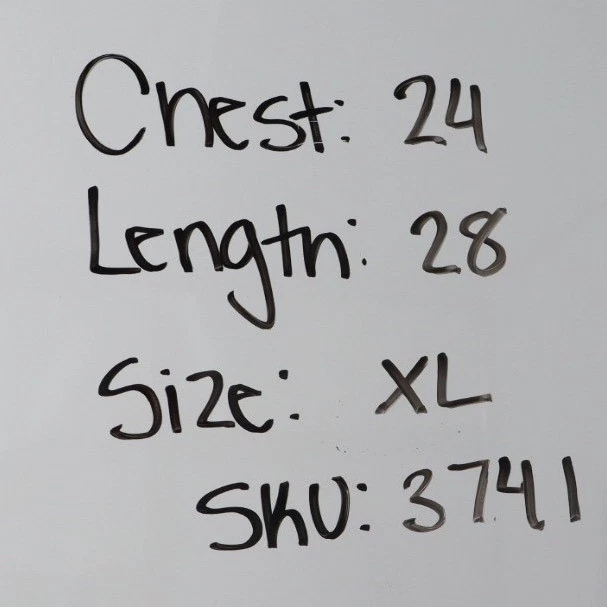 Chest: 24
Length: 28
Size: XL
SKU: 3741